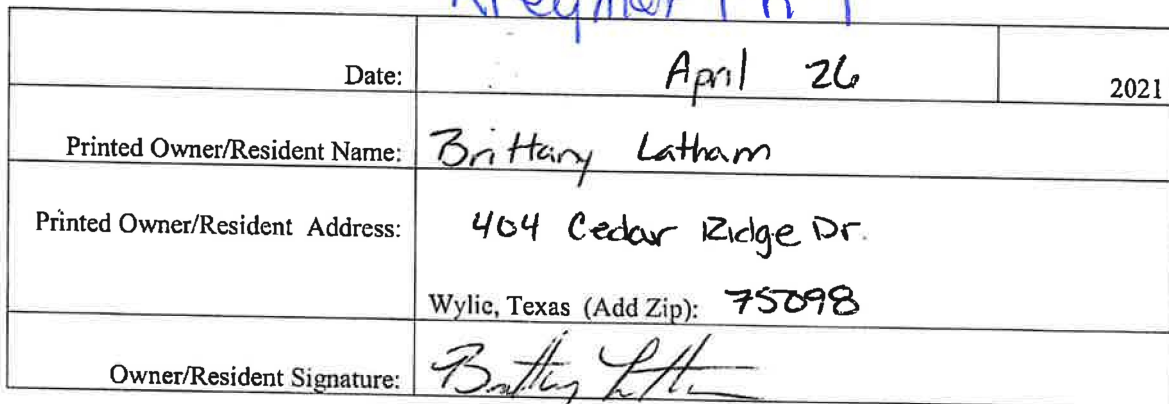 Date: April 26 2021
Printed Owner/Resident Name: Brittany Latham
Printed Owner/Resident Address: 404 Cedar Ridge Dr.
Wylie, Texas (Add Zip): 75098
Owner/Resident Signature: